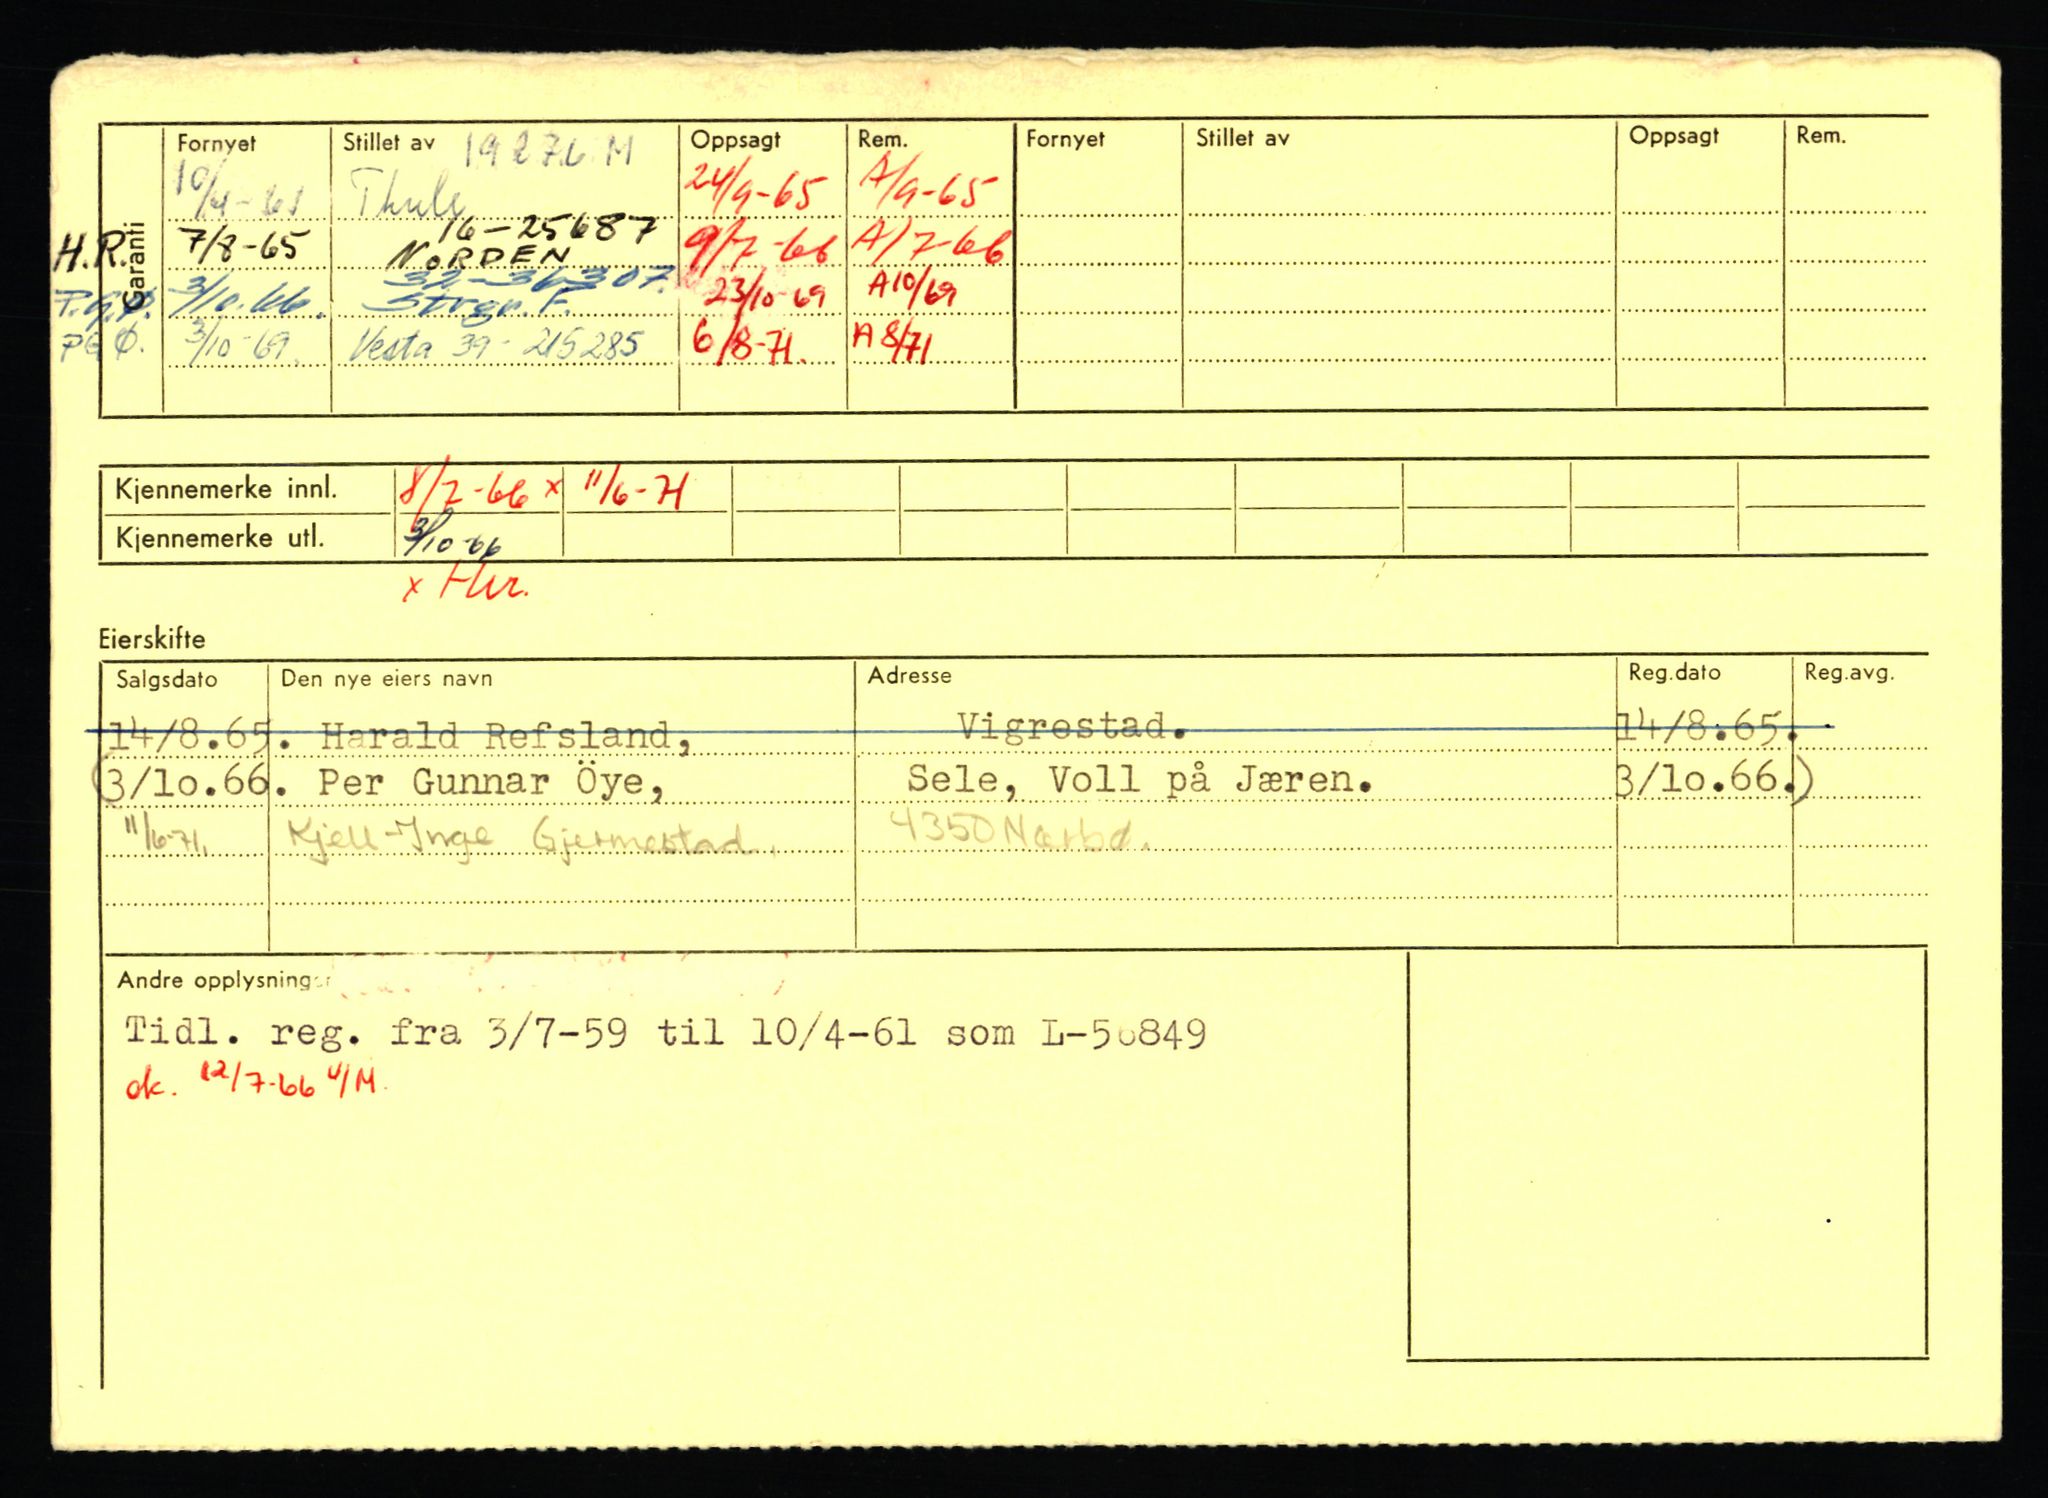 Garanti
Fornyet Stillet av Oppsagt Rem. Fornyet Stillet av Oppsagt Rem.
19276 M
10/4-61 Thule 24/9-65 A/9-65
16-25687
H.R. 7/8-65 NORDEN 9/7-66 A/7-66
32-36307.
P.G.Ø. 3/10.66. Strgr. F. 23/10-69 A10/69
PGØ. 3/10-69. Vesta 39-215285 6/8-71. A8/71
Kjennemerke innl. 8/7-66 x 11/6-71
Kjennemerke utl. 3/10-66
x Hvr.
Eierskifte
Salgsdato Den nye eiers navn Adresse Reg.dato Reg.avg.
14/8.65. Harald Refsland, Vigrestad. 14/8.65.
(3/10.66. Per Gunnar Öye, Sele, Voll på Jæren. 3/10.66.)
11/6-71. Kjell-Inge Gjermestad. 4350 Nærbø.
Andre opplysninger
Tidl. reg. fra 3/7-59 til 10/4-61 som L-56849
ok. 12/7-66 U/M.